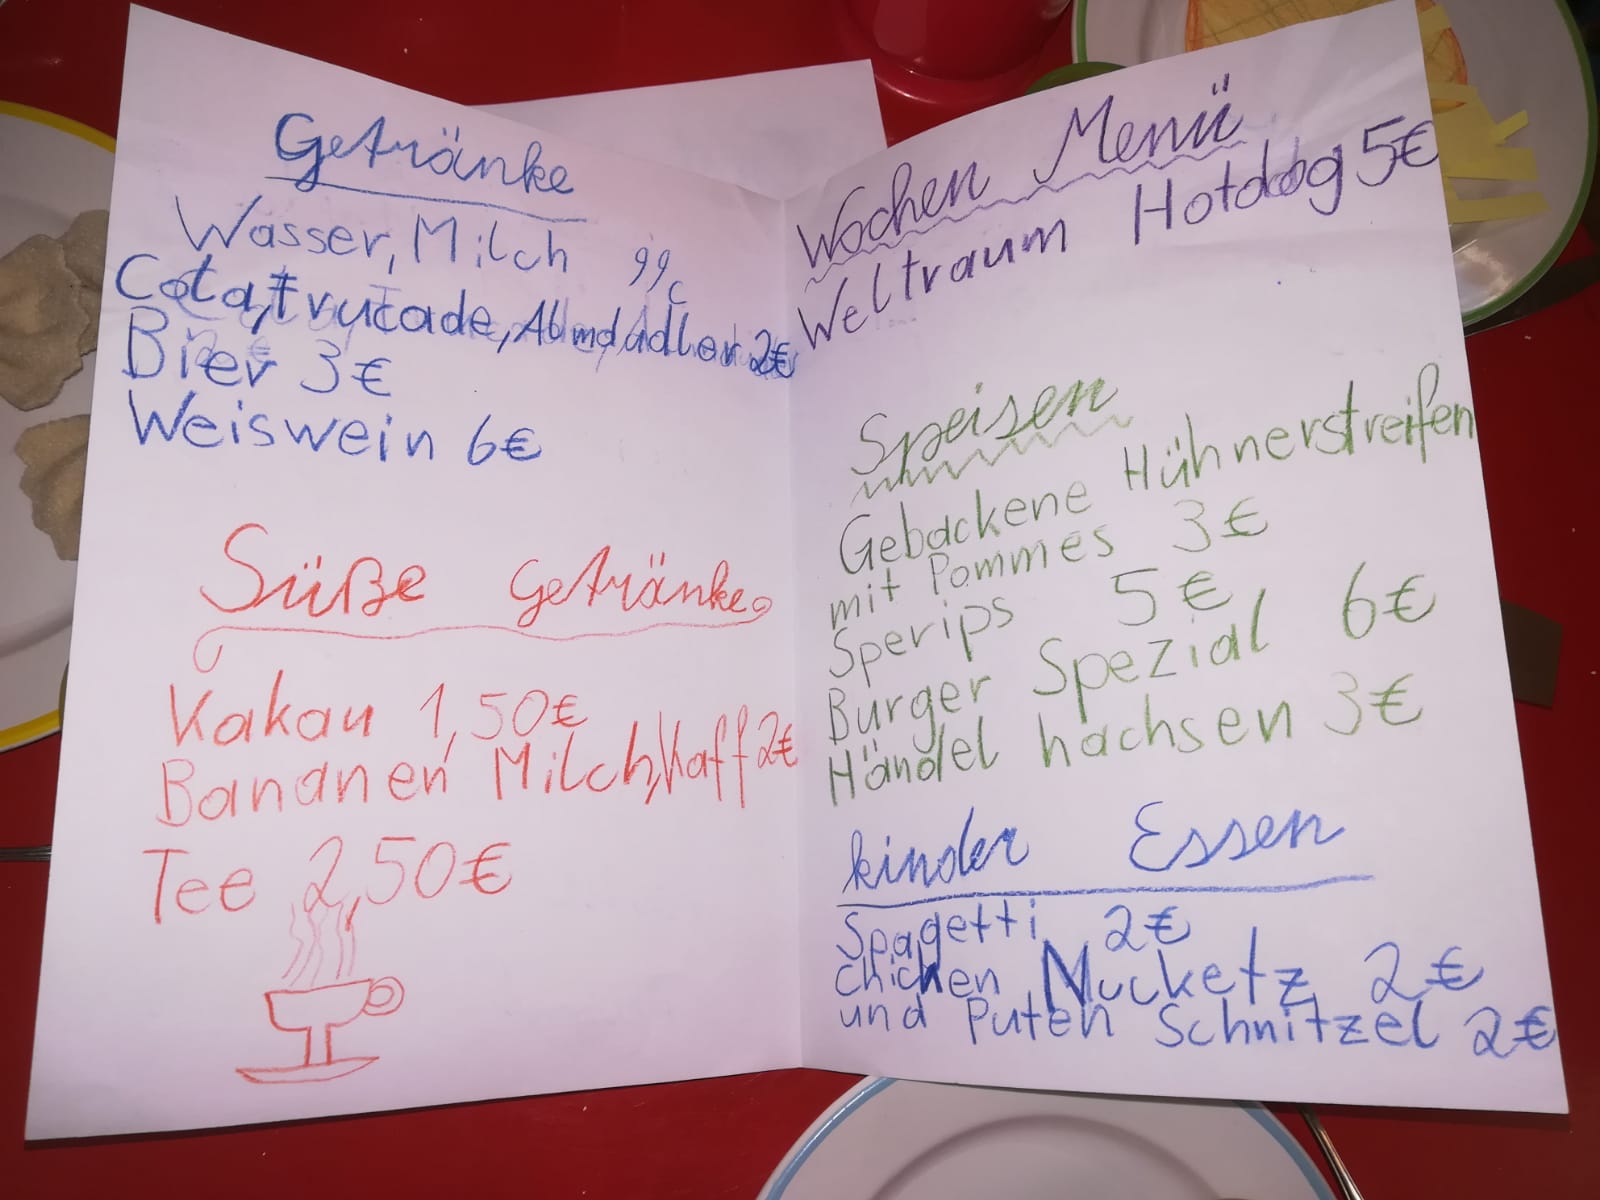 Getränke
Wasser, Milch 99c
Cola, Frucade, Almdudler 2€
Bier 3€
Weiswein 6€
Süße Getränke
Kakau 1,50€
Bananen Milch, Kaff 2€
Tee 2,50€
Wochen Menü
Weltraum Hotdog 5€
Speisen
Gebackene Hühnerstreifen
mit Pommes 3€
Sperips 5€
Burger Spezial 6€
Händel hachsen 3€
kinder Essen
Spagetti 2€
chicken Nucketz 2€
und Puten Schnitzel 2€